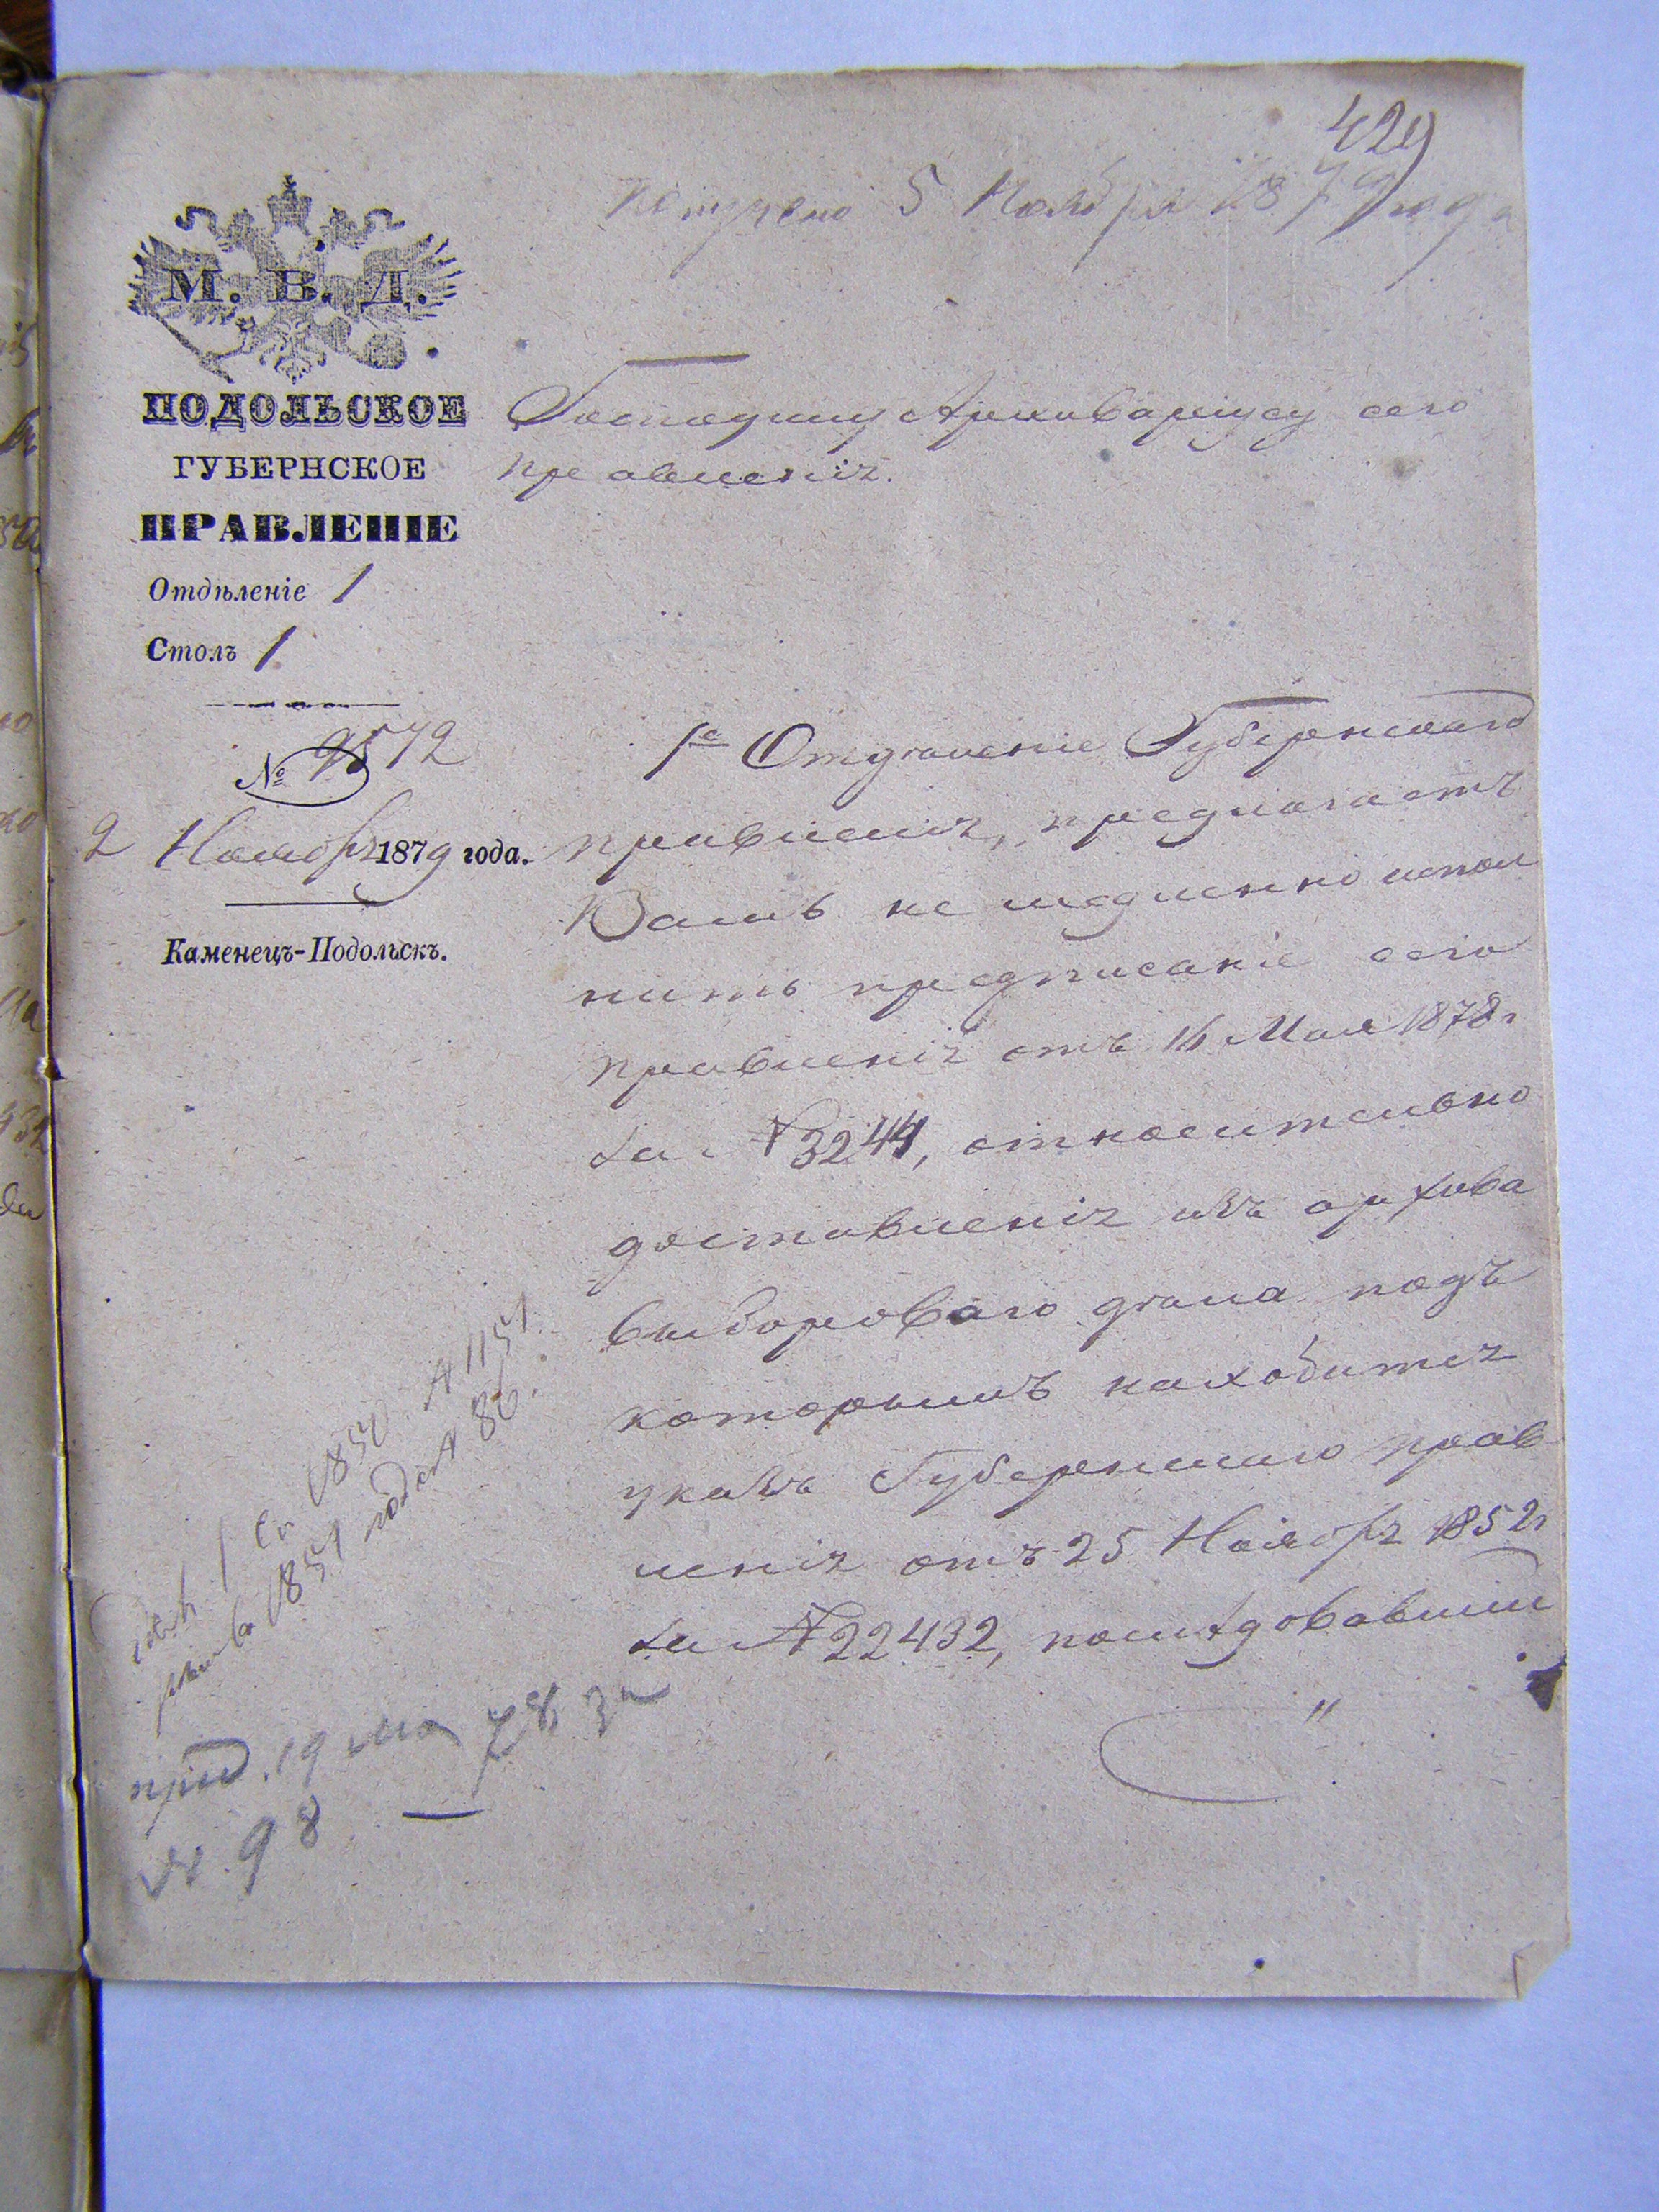 429
Получено 5 Ноября 1879 года
М. В. Д.
ПОДОЛЬСКОЕ
ГУБЕРНСКОЕ
ПРАВЛЕНІЕ
Отдѣленіе 1
Столъ 1
№ 9572
2 Ноября 1879 года.
Каменецъ-Подольскъ.
Господину Архиваріусу сего
правленія.
1е Отдѣленіе Губернскаго
правленія, предлагаетъ
Вамъ немедленно испол
нить предписаніе сего
правленія отъ 16 Мая 1878 г
за № 3244, относительно
доставленія изъ архива
выбороваго дѣла подъ
которымъ находится
указъ Губернскаго прав
ленія отъ 25 Ноября 1852 г
за № 22432, послѣдовавшій
1 Ст 1850 № 1151
1851 года № 86.
пред. 19 мая 78 за
№ 98